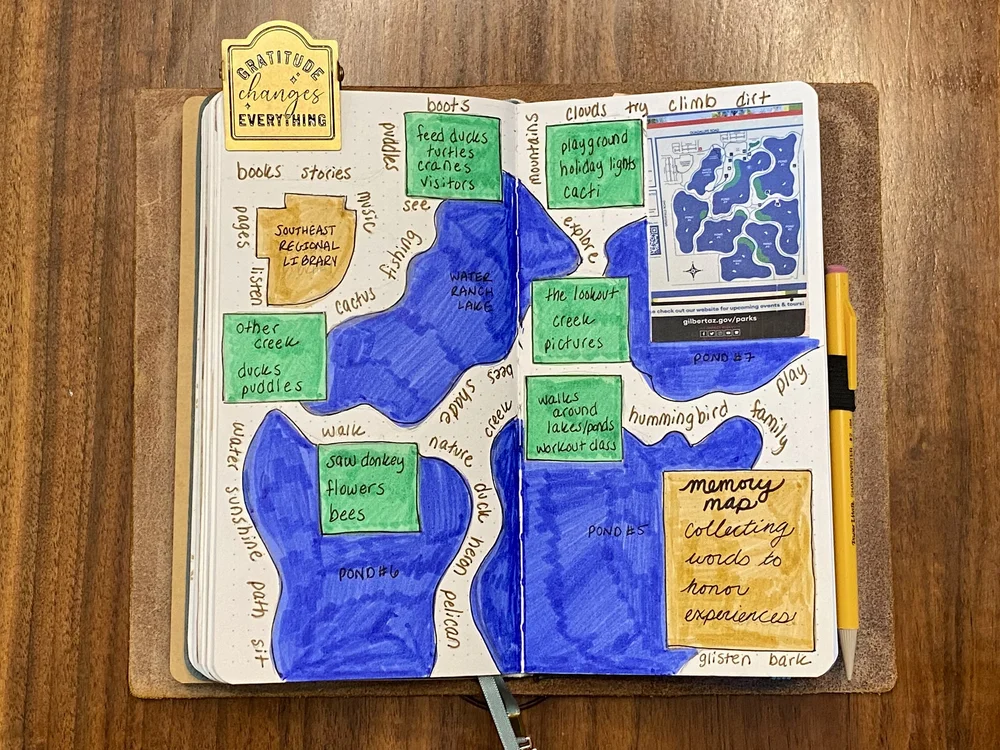 GRATITUDE
changes
EVERYTHING
books stories
pages
listen
music
SOUTHEAST
REGIONAL
LIBRARY
boots
puddles
feed ducks
turtles
cranes
visitors
see
cactus
WATER
RANCH
LAKE
other
creek
ducks
puddles
bees
shade
creek
walk
nature
water sunshine path sit
saw donkey
flowers
bees
duck neon pelican
POND #6
clouds try climb dirt
mountains
playground
holiday lights
cacti
explore
the lookout
creek
pictures
check out our website for upcoming events & tours!
gilbertaz.gov/parks
POND #7
play
family
hummingbird
walks
around
lakes/ponds
workout class
POND #5
memory
map
collecting
words to
honor
experiences
glisten bark